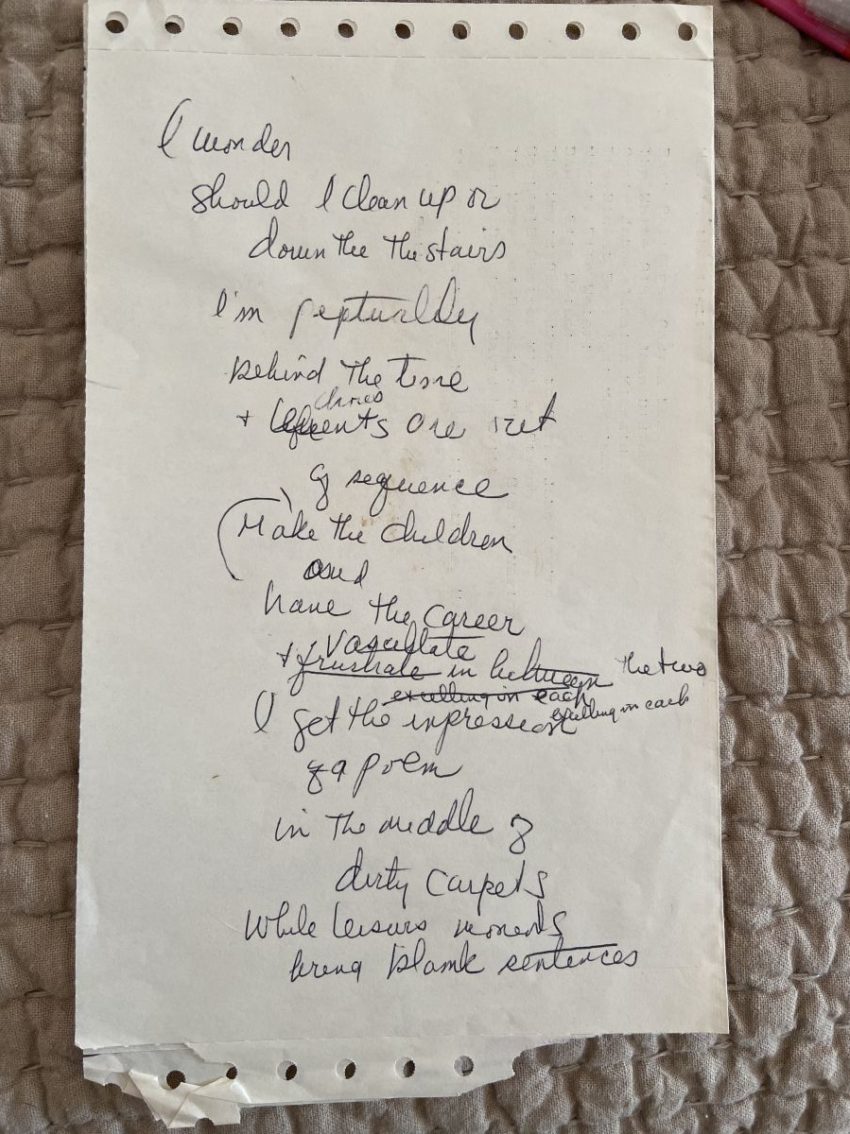 I wonder
should I clean up or
down the the stairs
I'm peptually
behind the time
chores
+ events are out
of sequence
Make the children
and
have the career
vasullate
+ frustrate in between the two
excelling in each
excelling in each
I get the impression
of a poem
in the middle of
dirty carpets
while leisure moments
bring blank sentences